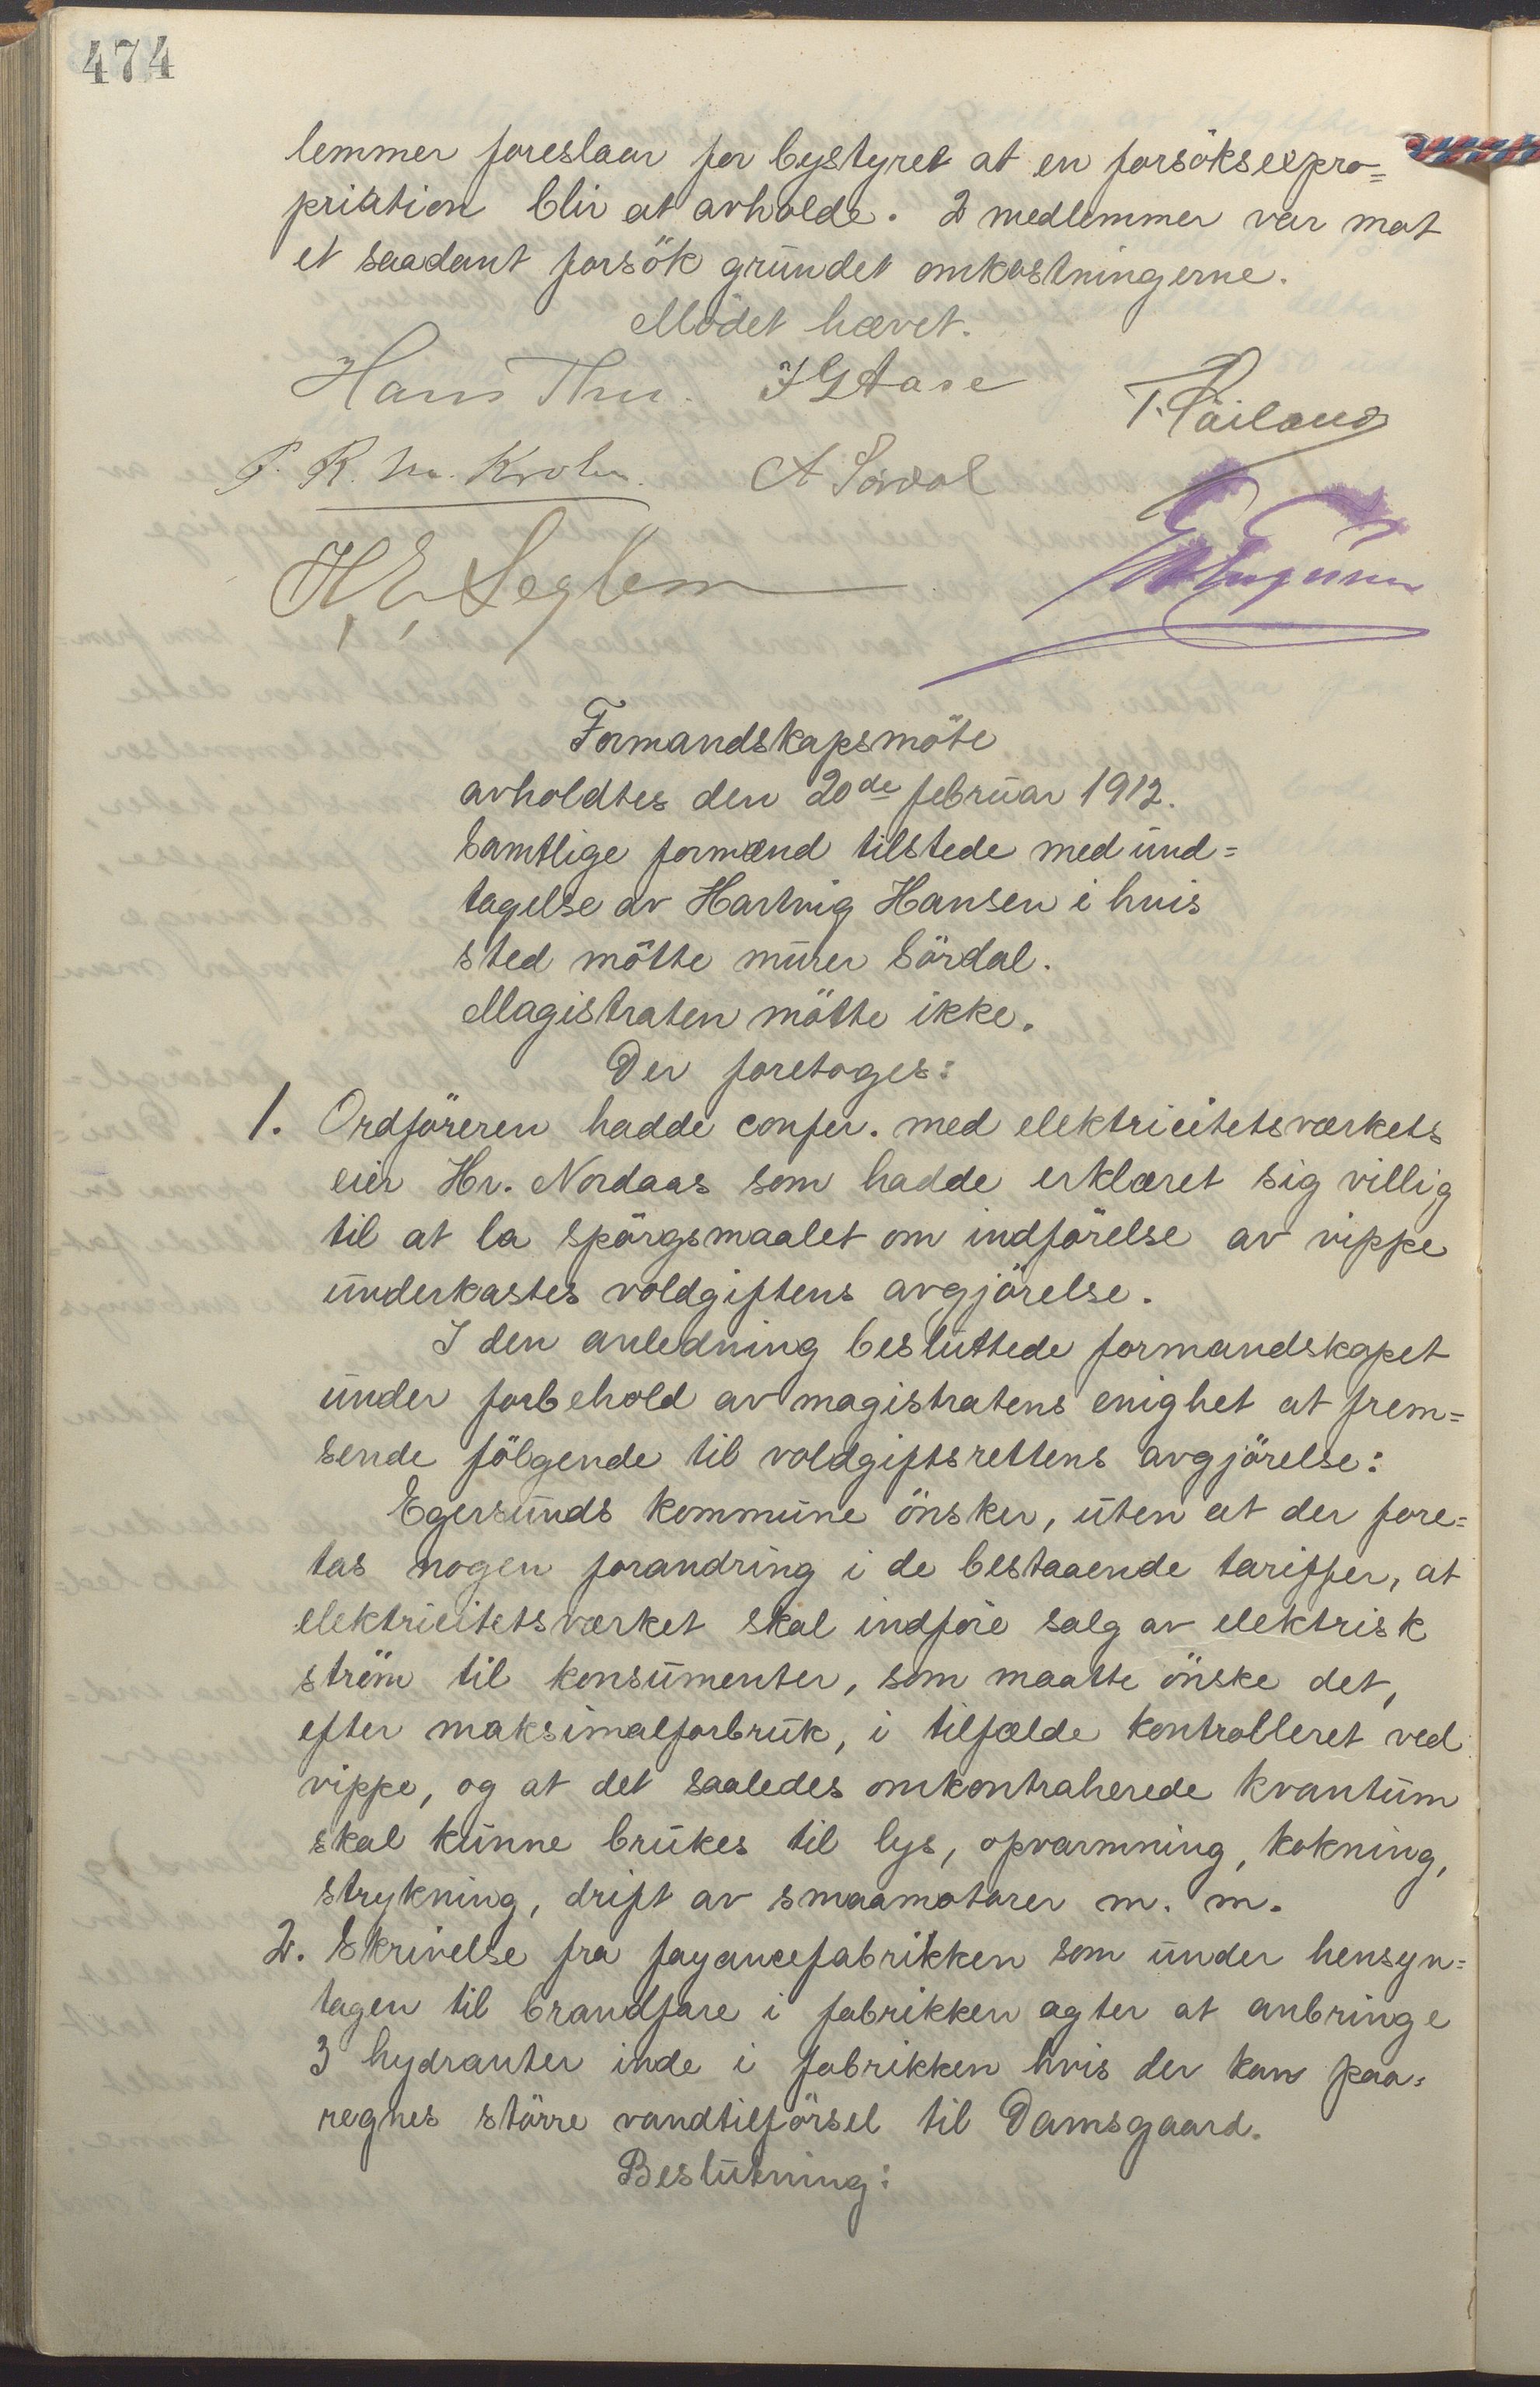 474
lemmer foreslaar for bystyret at en forsöksexpro=
priation blir at avholde. 2 medlemmer var mot
et saadant forsök grundet omkostningerne.
Mödet hævet.
Hans Thu. I G Aase
P. R. M. Krohn. A Sördal
H. E. Seglem
Formandskapsmöte
avholdtes den 20de februar 1912.
Samtlige formænd tilstede med und=
tagelse av Hartvig Hansen i hvis
sted mötte murer Sördal.
Magistraten mötte ikke.
Der foretoges:
1. Ordföreren hadde confer. med elektricitetsværkets
eier Hr. Nordaas som hadde erklæret sig villig
til at la spörgsmaalet om indförelse av vippe
underkastes voldgiftens avgjörelse.
I den anledning besluttede formandskapet
under forbehold av magistratens enighet at frem=
sende fölgende til voldgiftsrettens avgjörelse:
Egersunds kommune önsker, uten at der fore=
tas nogen forandring i de bestaaende tariffer, at
elektricitetsværket skal indföre salg av elektrisk
ström til konsumenter, som maatte önske det,
efter maksimalforbruk, i tilfælde kontrolleret ved
vippe, og at det saaledes omkontraherede kvantum
skal kunne brukes til lys, opvarmning, kokning,
strykning, drift av smaamotorer m. m.
2. Skrivelse fra fayancefabrikken som under hensyn=
tagen til brandfare i fabrikken agter at anbringe
3 hydranter inde i fabrikken hvis der kan paa=
regnes större vandtilförsel til Damsgaard.
Beslutning: